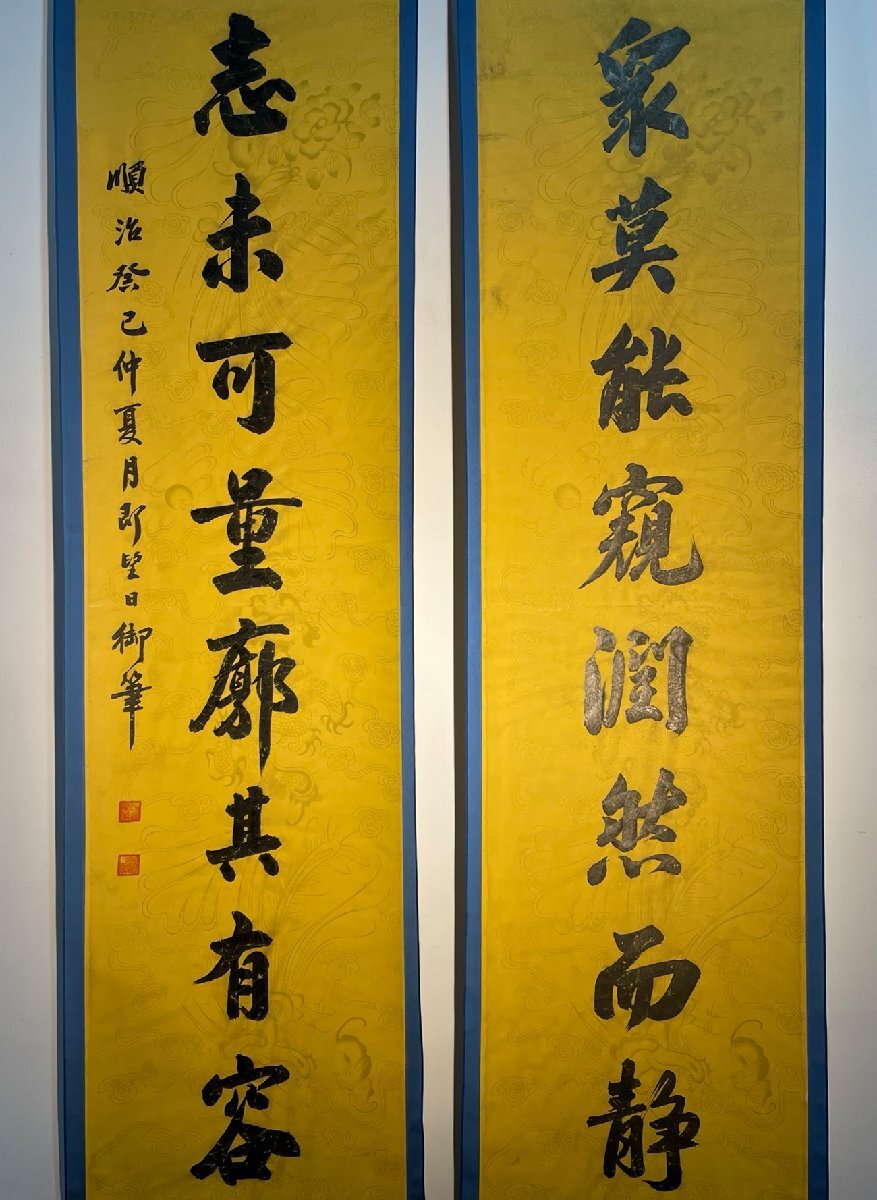 眾莫能窺潤然而静
志未可量廓其有容
順治癸巳仲夏月即望日御筆